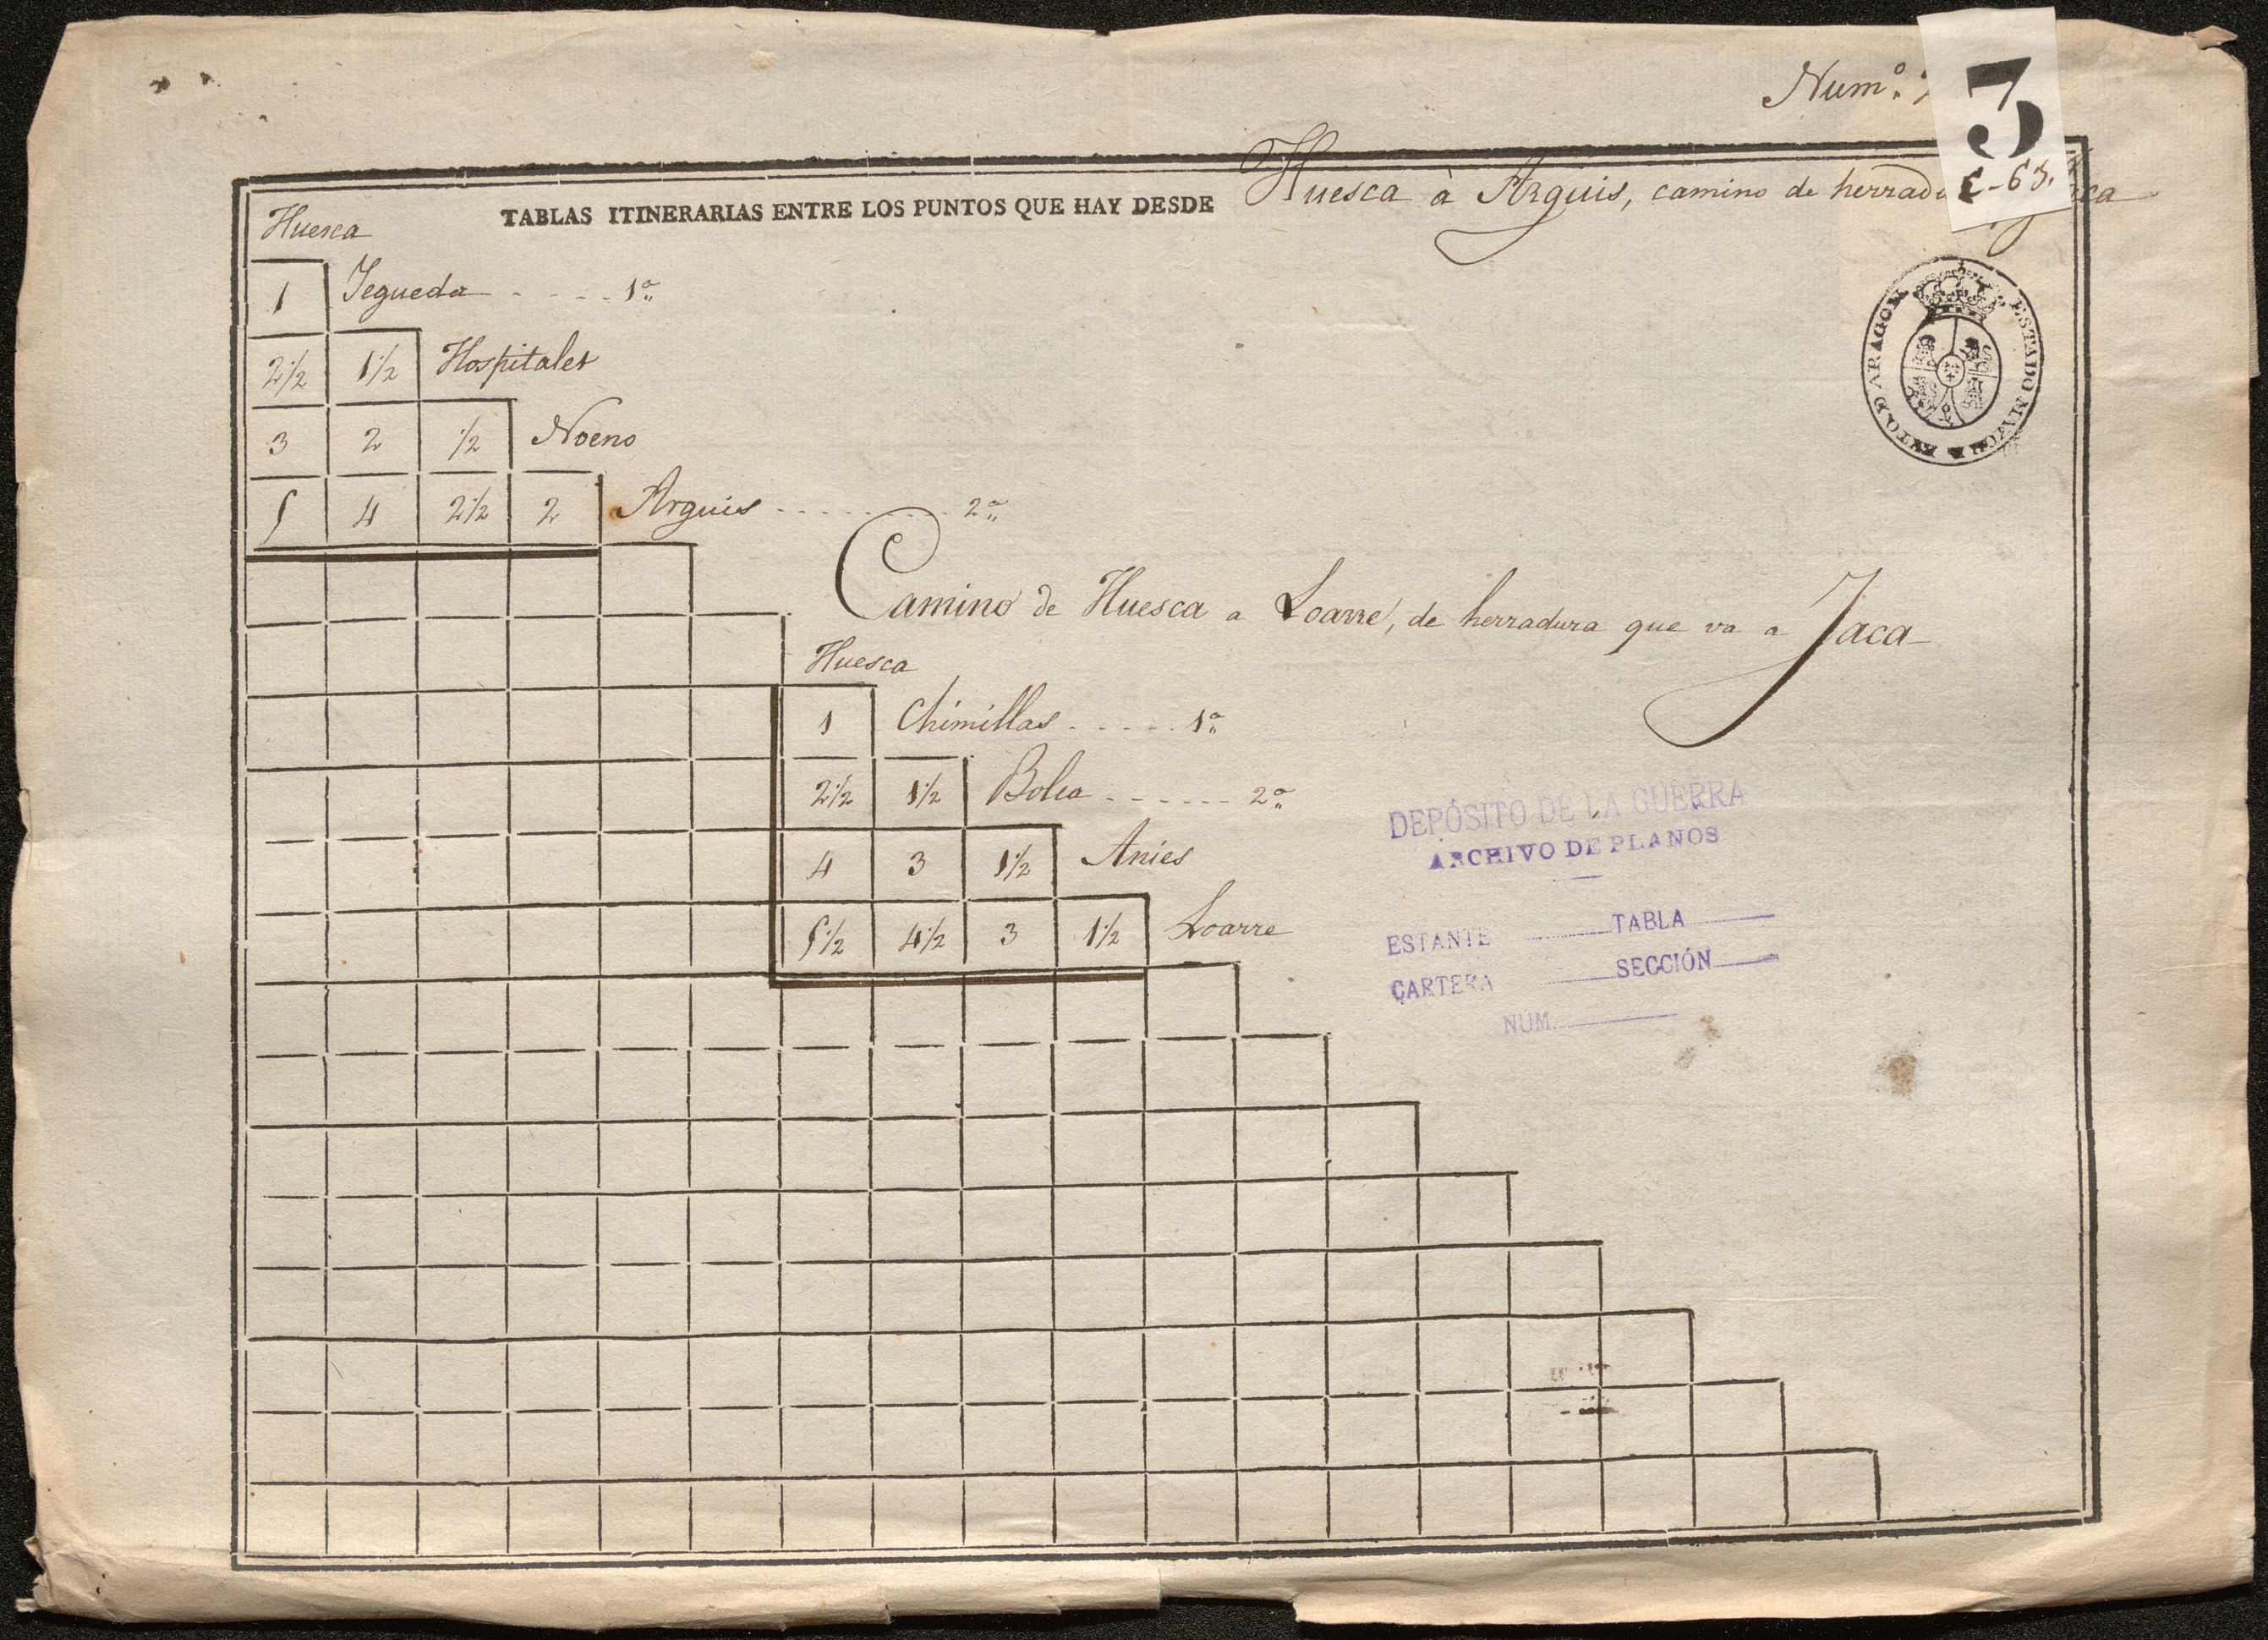 Numº.
3
C-63.
TABLAS ITINERARIAS ENTRE LOS PUNTOS QUE HAY DESDE Huesca à Arguis, camino de
Huesca
1 Yequeda - - - - - 1ª
2½ 1½ Hospitalet
3 2 ½ Noeno
5 4 2½ 2 Arguis - - - - - - - - - 2ª
EXTO. D ARAGON ESTADO MAYOR
Camino de Huesca a Loarre, de herradura que va a Jaca
Huesca
1 Chimillas - - - - - 1ª
2½ 1½ Bolea - - - - - - 2ª
4 3 1½ Anies
5½ 4½ 3 1½ Loarre
DEPÓSITO DE LA GUERRA
ARCHIVO DE PLANOS
ESTANTE TABLA
CARTERA SECCIÓN
NÚM.